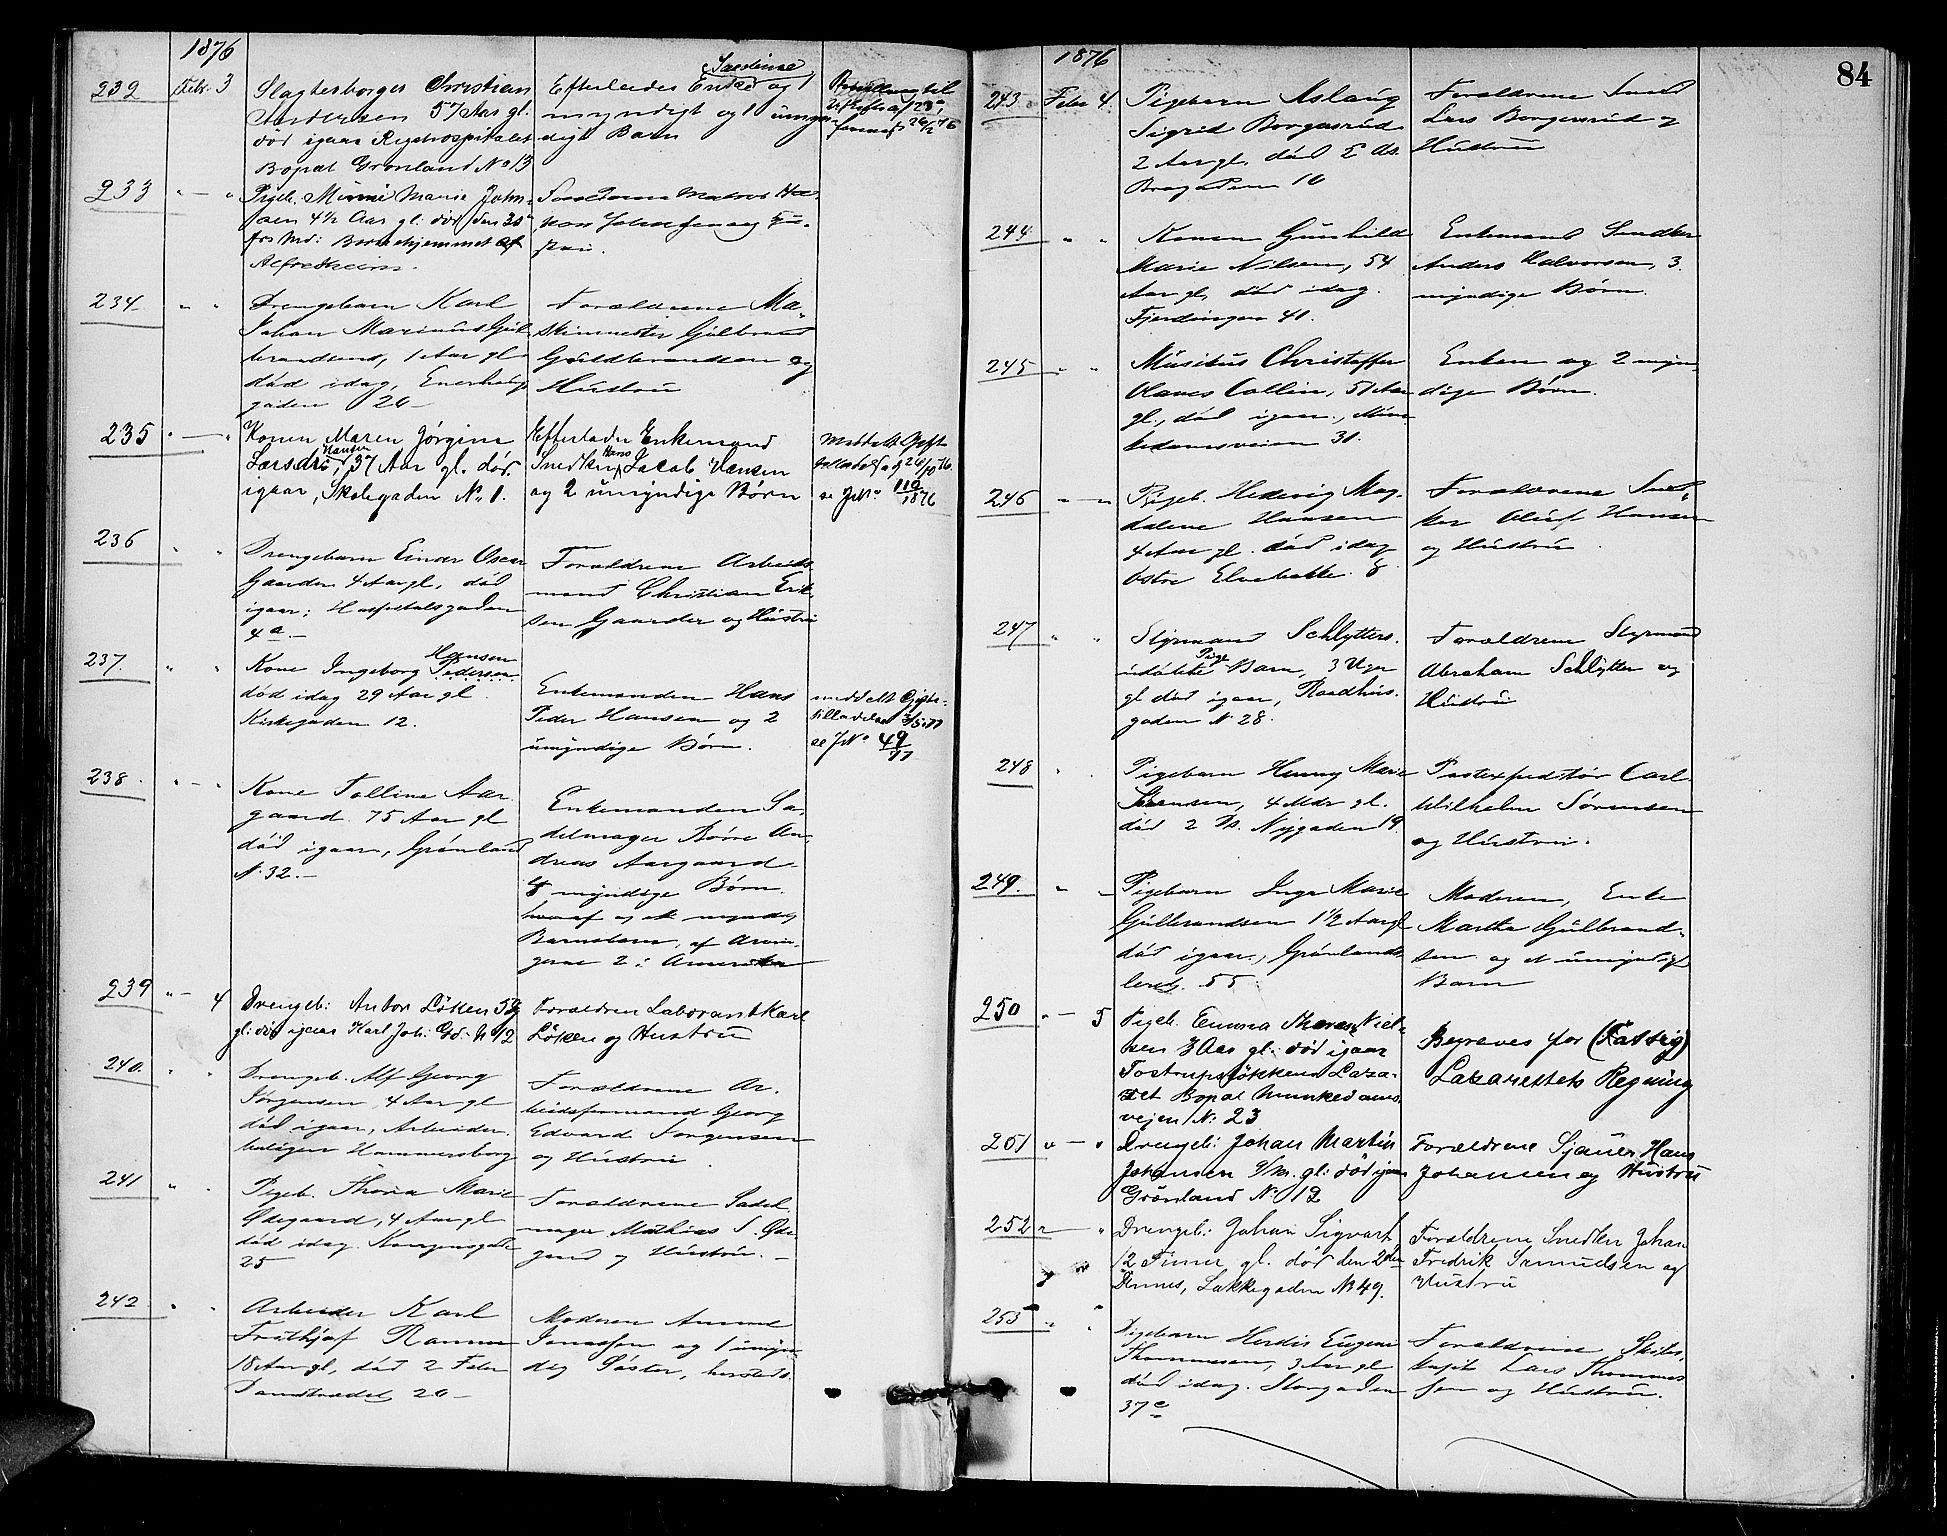 1876
232 Febr. 3 Slagterborger Christian
Andersen 57 Aar gl.
død igaar Rigshospitalet
Bopæl Grønland No 13
Efterlades Enke og 1
myndigt og 1 umyn-
digt Barn
233 " — " Pigeb. Minni Marie John-
sen 4½ Aar gl. død den 30
frs Md: Børnehjemmet af
Alfredheim.
234 " " Drengebarn Karl
Johan Marinus Gul-
brandsens, 1 Aar gl
død idag, Enerhaug-
gaden 26 —
Forældrene Ma-
skinmester Gulbrand
Guldbrandsen og
Hustru
235 " — " Konen Maren Jørgine
Larsdr. Hansen, 37 Aar gl. død
igaar, Skolegaden No 1.
Efterlader Enkemand
Snedker Hans Jacob Hansen
og 2 umyndige Børn
Meddelt Gifte-
tilladelse 26/10 76
se JNo 110/1876
236 " " Drengebarn Einar Oscar
Gaarder 4 Aar gl, død
igaar, Hospitalsgaden
4a. —
Forældrene Arbeids-
mand Christian Erik-
sen Gaarder og Hustru
237. " " Kone Ingeborg Hansen Pedersen
død idag 29 Aar gl
Kirkegaden 12.
Enkemanden Hans
Peder Hansen og 2
umyndige Børn.
meddelt Gifte-
tilladelse 3/5 77
se JNo 49/77
238. " — " Kone Aar-
gaard 75 Aar gl
død igaar, Grønland
N. 32. —
Enkemanden Sa-
delmager Børre An-
dreas Aargaard
myndige Børn.
hvoraf og et myndig
Barnebarn, af Arvin-
gerne 2 i Amerika
239 " — 4 Drengeb: Anton Løken
gl: død igaar Karl Joh: Gd. N 12
Forældren Laborant Karl
Løken og Hustru
240. " " Drengeb. Alf Georg
Jørgensen, 4 Aar gl
død igaar, Arbeider-
boligen Hammersborg
Forældrene Ar-
beidsformand Georg
Edvard Jørgensen
og Hustru.
241 " " Pigeb. Thora Marie
Ødegaard, 4 Aar gl
død idag. Kongensgade
25
Forældrene Sadel-
mager Mathias S. Øde-
gaard og Hustru. —
242 " " Arbeider Karl
Frithjof
18 Aar gl, død 2 Febr
26 —
Moderen
og 1 umyn-
dig Søster, hersteds
84
1876
243 Febr 4. Pigebarn Aslaug
Sigrid Borgersrud
2 Aar gl. død 2 ds.
Brogaden 10
Forældrene Smed
Lars Borgersrud og
Hustru
244 " " Konen Gunhild
Marie Nilsen, 54
Aar gl, død idag.
Fjerdingen 41.
Enkemand Snedker
Anders Halvorsen, 3
myndige Børn.
245 " " Musikus Christoffer
Olaves Collin, 51 Aar
gl, død igaar, Mun-
kedamsveien 31.
Enken og 2 myn-
dige Børn.
246 " — " Pigeb. Hedevig Mag-
dalene Hansen
4 Aar gl. død idag
Østre Elvebakke 8
Forældrene Sned-
ker Oluf Hansen
og Hustru.
247 " " Styrmand Schlytters.
udøbte Pige Barn, 3 Uger
gl død igaar, Raadhus-
gaden N 28.
Forældrene Styrmand
Abraham Schlytter og
Hustru
248 " . Pigebarn Henny Marie
Sørensen, 4 Mdr gl.
død 2 ds. Nygaden 19.
Postexpeditør Carl
Wilhelm Sørensen
og Hustru.
249. " — Pigebarn Inga Marie
Gulbrandsen 1½ Aar gl
død igaar, Grønlands-
55
Moderen, Enke
Martha Gulbrand-
sen og et umyndigt
Barn
250 " — 5 Pigeb. Emma Niel-
sen 3 Aar gl: død igaar
Tostrupsløkkens Laza-
ret Bopæl Munkedams-
vejen N: 23
Begraves for (Fattig)
Lazarettets Regning
251 " — " Drengeb: Johan Martin
Johansen gl: død igaar
Grønland No 12
Forældrene Sjauer Hans
Johansen og Hustru
252 " — " Drengeb: Johan Sigvart
12 Timer gl. død den 2den
Dennes, Lakkegaden No 49.
Forældrene Snedker Johan
Fredrik Samuelsen og
Hustru
253 " " Pigebarn Herdis Eugenie
Thommesen, 3 Aar gl
død idag. Storgaden
37c
Forældrene, Skibs-
kapt Lars Thommes-
sen og Hustru.